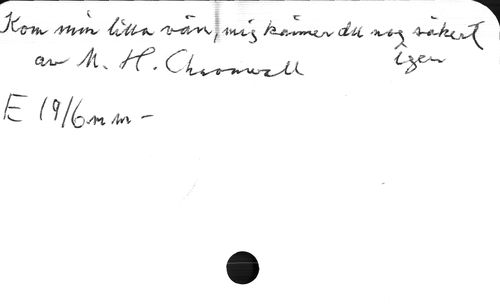 Kom min lilla vän, mig känner du nog säkert
igen
av M. H. Cronwall
E 19/6 m m -